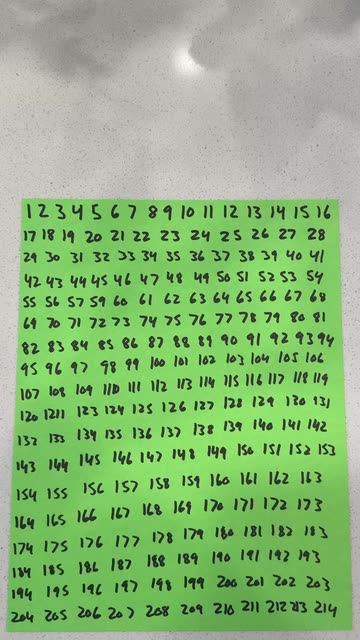 1 2 3 4 5 6 7 8 9 10 11 12 13 14 15 16
17 18 19 20 21 22 23 24 25 26 27 28
29 30 31 32 33 34 35 36 37 38 39 40 41
42 43 44 45 46 47 48 49 50 51 52 53 54
55 56 57 59 60 61 62 63 64 65 66 67 68
69 70 71 72 73 74 75 76 77 78 79 80 81
82 83 84 85 86 87 88 89 90 91 92 93 94
95 96 97 98 99 100 101 102 103 104 105 106
107 108 109 110 111 112 113 114 115 116 117 118 119
120 1211 123 124 125 126 127 128 129 130 131
132 133 134 135 136 137 138 139 140 141 142
143 144 145 146 147 148 149 150 151 152 153
154 155 156 157 158 159 160 161 162 163
164 165 166 167 168 169 170 171 172 173
174 175 176 177 178 179 180 181 182 183
184 185 186 187 188 189 190 191 192 193
194 195 196 197 198 199 200 201 202 203
204 205 206 207 208 209 210 211 212 213 214